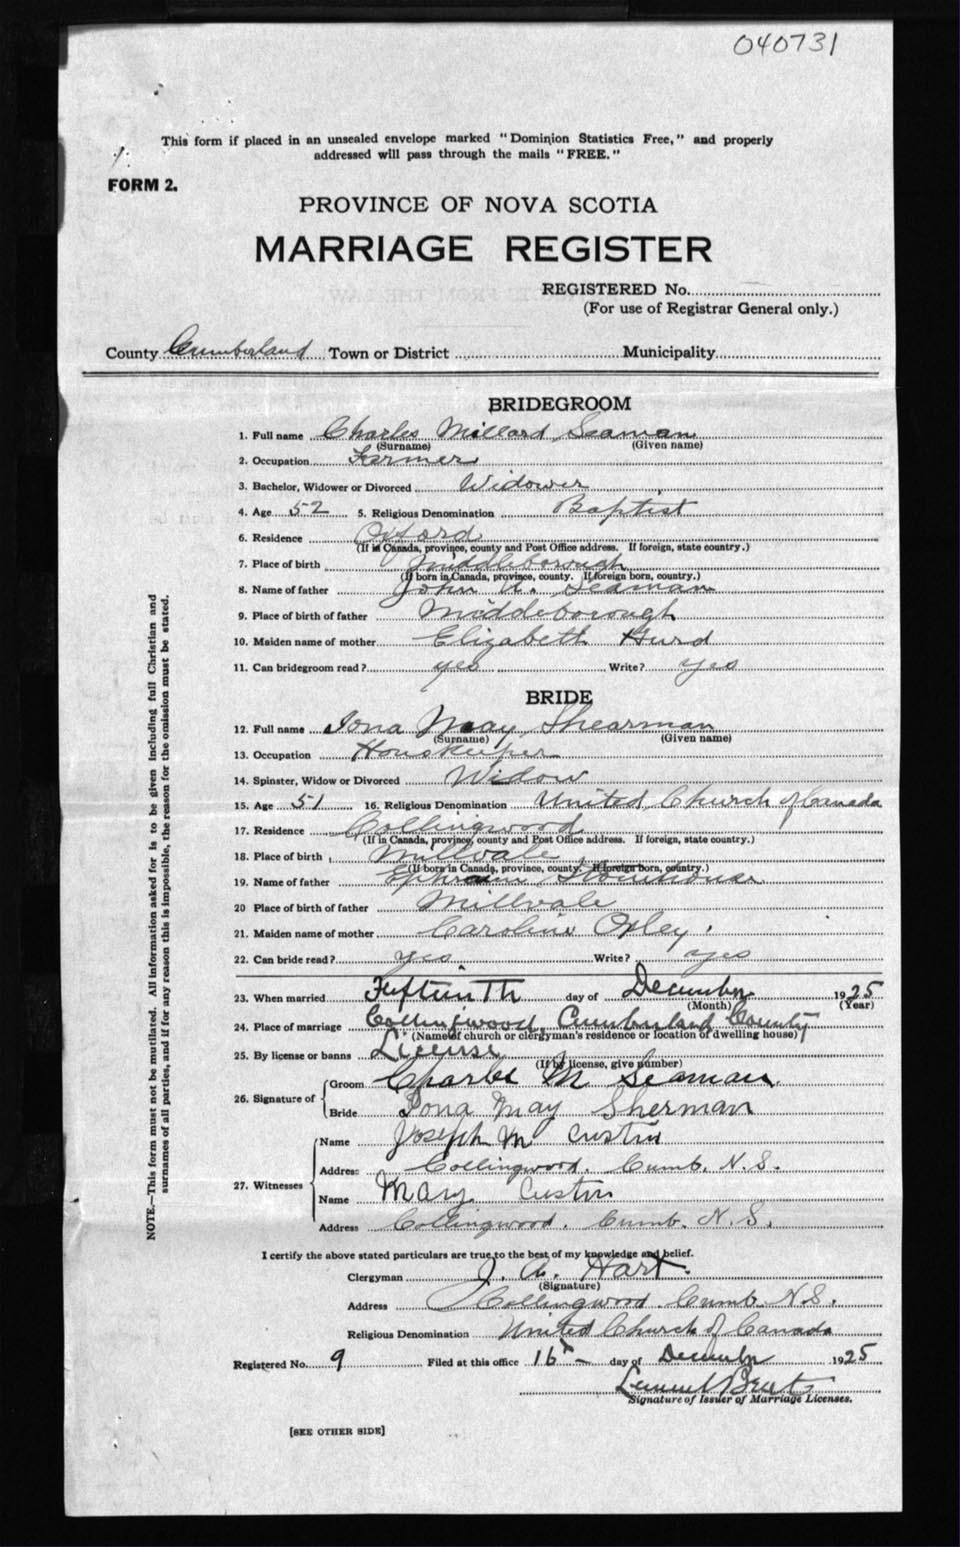 040731
This form if placed in an unsealed envelope marked "Dominion Statistics Free," and properly
addressed will pass through the mails "FREE."
FORM 2.
PROVINCE OF NOVA SCOTIA
MARRIAGE REGISTER
REGISTERED No.
(For use of Registrar General only.)
County Cumberland Town or District Municipality
BRIDEGROOM
1. Full name Charles Millard Seaman
(Surname) (Given name)
2. Occupation Farmer
3. Bachelor, Widower or Divorced Widower
4. Age 52 5. Religious Denomination Baptist
6. Residence Oxford
(If in Canada, province, county and Post Office address. If foreign, state country.)
7. Place of birth Middleborough
(If born in Canada, province, county. If foreign born, country.)
8. Name of father John Seaman
9. Place of birth of father Middleborough
10. Maiden name of mother Elizabeth Hurd
11. Can bridegroom read? yes Write? yes
BRIDE
12. Full name Iona May Shearman
(Surname) (Given name)
13. Occupation Houskeeper
14. Spinster, Widow or Divorced Widow
15. Age 51 16. Religious Denomination United Church of Canada
17. Residence Collingwood
(If in Canada, province, county and Post Office address. If foreign, state country.)
18. Place of birth Millvale
(If born in Canada, province, county. If foreign born, country.)
19. Name of father Ephraim
20 Place of birth of father Millvale
21. Maiden name of mother Caroline Oxley
22. Can bride read? yes. Write? yes
23. When married Fifteenth day of December 1925
(Month) (Year)
24. Place of marriage Collingwood, Cumberland County
(Name of church or clergyman's residence or location of dwelling house)
25. By license or banns License
(If by license, give number)
26. Signature of Groom Charles M Seaman
Bride Iona May Sherman
27. Witnesses Name Joseph M Custin
Address Collingwood. Cumb. N.S.
Name Mary Custin
Address Collingwood. Cumb. N.S.
I certify the above stated particulars are true to the best of my knowledge and belief.
Clergyman J. A. Hart.
(Signature)
Address Collingwood Cumb. N.S.
Religious Denomination United Church of Canada
Registered No. 9 Filed at this office 16 day of December 1925
Signature of Issuer of Marriage Licenses.
[SEE OTHER SIDE]
NOTE.—This form must not be mutilated. All information asked for is to be given including full Christian and
surnames of all parties, and if for any reason this is impossible, the reason for the omission must be stated.